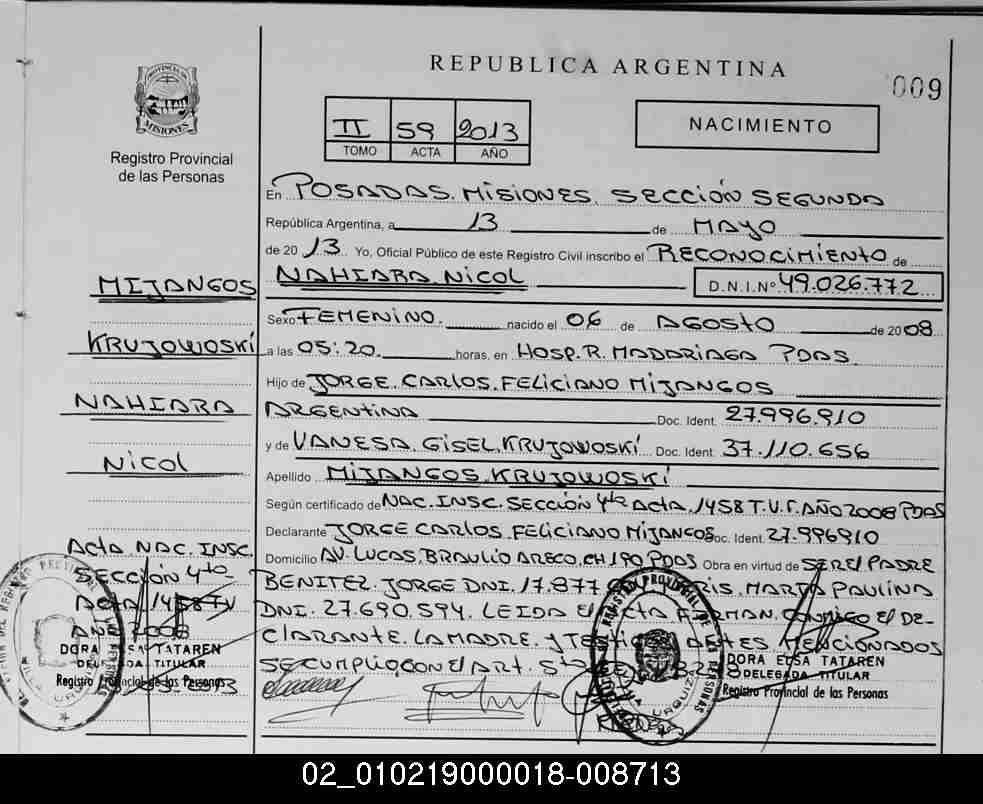 REPUBLICA ARGENTINA
009
PROVINCIA DE
MISIONES
Registro Provincial
de las Personas
II 59 2013
TOMO ACTA AÑO
NACIMIENTO
En POSADAS. MISIONES. SECCIÓN SEGUNDA
República Argentina, a 13 de MAYO
de 20 13. Yo, Oficial Público de este Registro Civil inscribo el RECONOCIMIENTO de
NAHIARA NICOL D.N.I. Nº 49.026.772
Sexo FEMENINO. nacido el 06 de AGOSTO de 2008
a las 05:20 horas, en HOSP. R. MADARIAGA PDAS.
Hijo de JORGE CARLOS FELICIANO MIJANGOS
ARGENTINA Doc. Ident. 27.996.910
y de VANESA GISEL KRUJOWOSKÍ Doc. Ident. 37.110.656
Apellido MIJANGOS KRUJOWOSKÍ
Según certificado de NAC. INSC. SECCIÓN 4ta ACTA 1458 T.V. AÑO 2008 PDAS
Declarante JORGE CARLOS FELICIANO MIJANGOS Doc. Ident. 27.996910
Domicilio AV. LUCAS BRAULIO ARECO CH 190 PDAS Obra en virtud de SER EL PADRE
BENITEZ JORGE DNI. 17.877 MARTA PAULINA
DNI. 27.690.594. LEIDA EL ACTA FIRMAN CONMIGO El DE-
CLARANTE. LA MADRE. Y MENCIONADOS
SE CUMPLIO CON El ART. 5ta
DORA ELSA TATAREN
DELEGADA TITULAR
Registro Provincial de las Personas
MIJANGOS
KRUJOWOSKÍ
NAHIARA
NICOL
ACTA NAC. INSC.
SECCIÓN 4ta
ACTA 1458 TV
2008
DORA ELSA TATAREN
DELEGADA TITULAR
Registro Provincial de las Personas
02_010219000018-008713